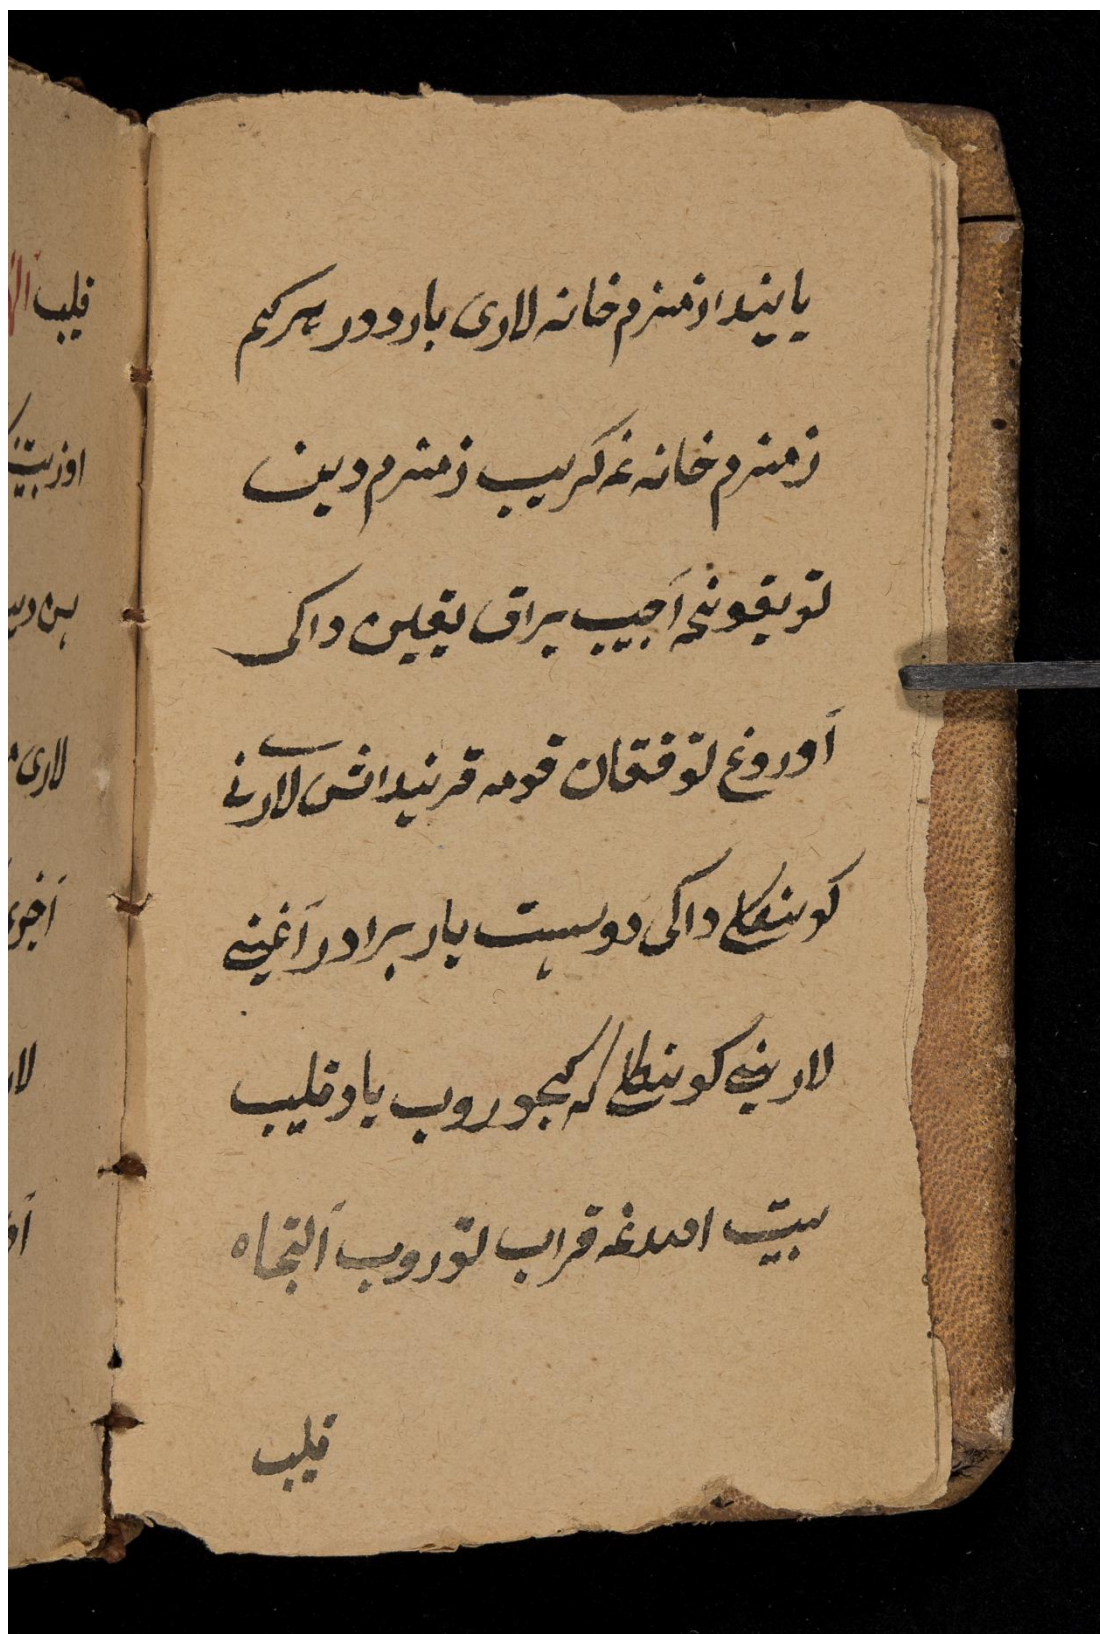 یانیدا زمزم خانه لاری باردور هر کم
زمزم خانه غه کریب زمزم دین
توپقونچه اَچیب براق یقین داکی
اَوروغ توققان قومه قرنیداش لارنی
کونکلی داکی دوست یار برادر آغینی
لارینی کونکلی که کیجوروب یاد قلیب
بیت اللهغه قراب توروب اَلتجاه
قلیب
قلیب
لاری